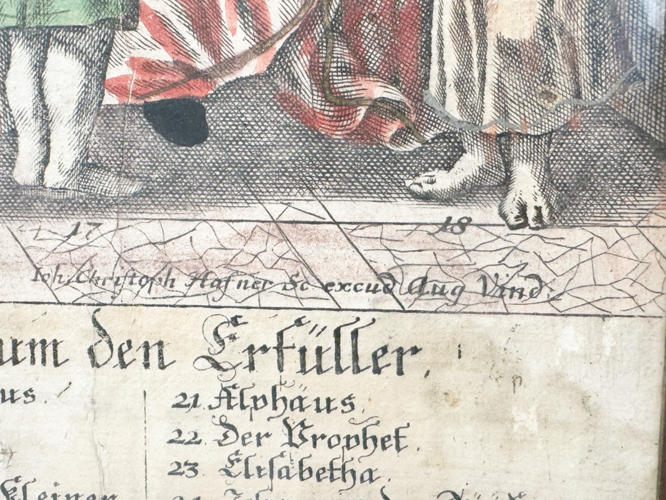 17
18
Ioh. Christoph Hafner Sc excud Aug Vind.
um den Erfüller.
us.
21. Alphäus.
22. Der Prophet.
23 Elisabetha.
Kleiner